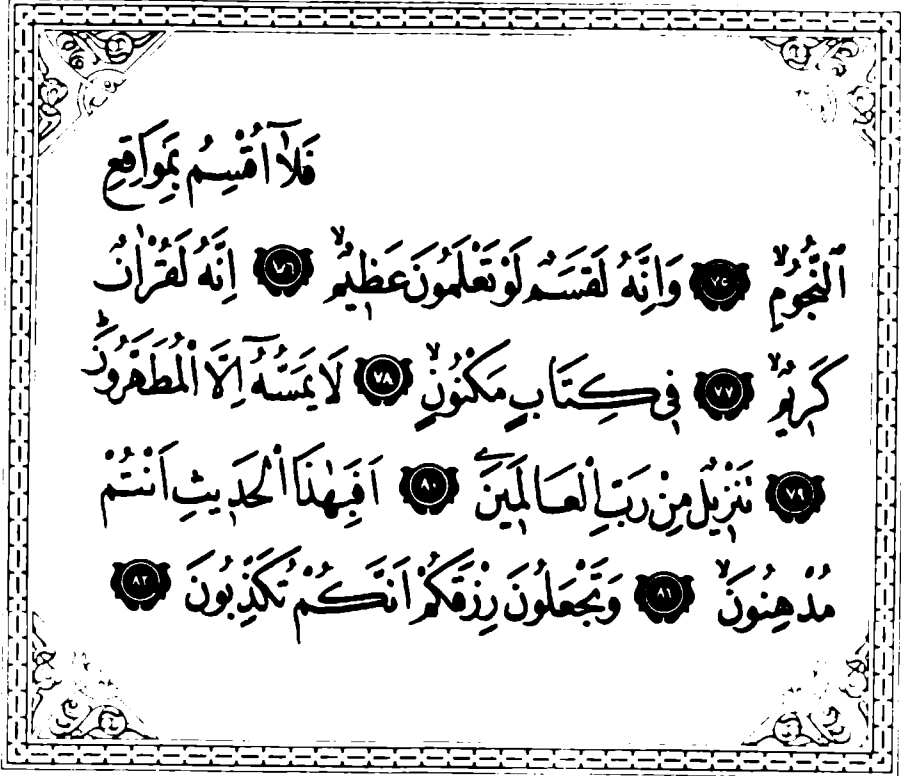 فَلَٓا اُقْسِمُ بِمَوَاقِعِ
النُّجُومِۙ ﴿٧٥﴾ وَاِنَّهُ لَقَسَمٌ لَوْ تَعْلَمُونَ عَظ۪يمٌۙ ﴿٧٦﴾ اِنَّهُ لَقُرْاٰنٌ
كَر۪يمٌۙ ﴿٧٧﴾ ف۪ي كِتَابٍ مَكْنُونٍۙ ﴿٧٨﴾ لَا يَمَسُّهُٓ اِلَّا الْمُطَهَّرُونَۜ
﴿٧٩﴾ تَنْز۪يلٌ مِنْ رَبِّ الْعَالَم۪ينَ ﴿٨٠﴾ اَفَبِهٰذَا الْحَد۪يثِ اَنْتُمْ
مُدْهِنُونَۙ ﴿٨١﴾ وَتَجْعَلُونَ رِزْقَكُمْ اَنَّكُمْ تُكَذِّبُونَ ﴿٨٢﴾